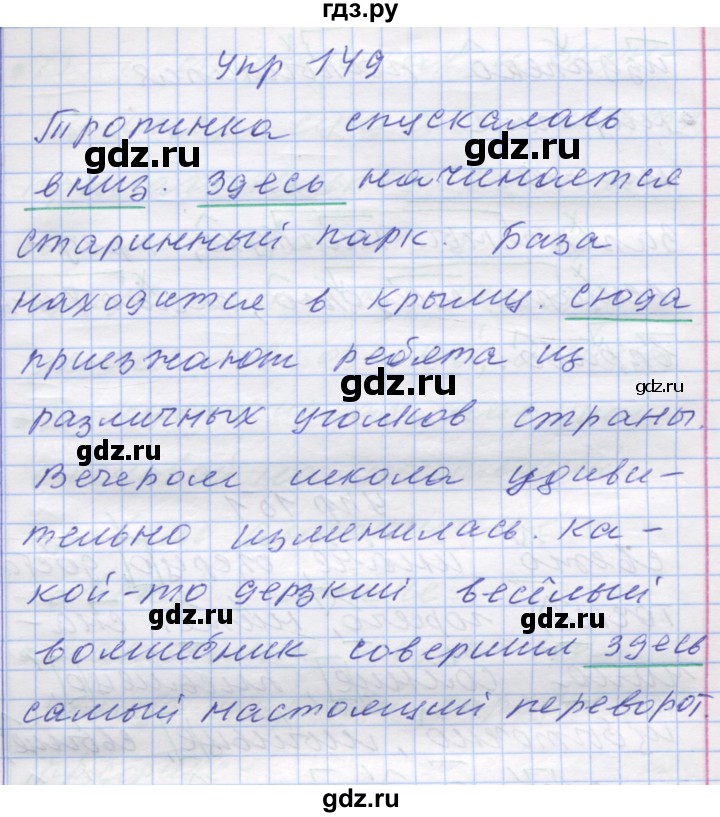 гдз.ру
упр 149
Тропинка спускалась
gdz.ru gdz.ru
вниз. Здесь начинается
старинный парк. База
находится в Крыму. Сюда
приезжают ребята из
gdz.ru gdz.ru
различных уголков страны.
gdz.ru
Вечером школа удиви-
тельно изменилась. Ка-
кой-то дерзкий весёлый
gdz.ru gdz.ru
волшебник совершил здесь
самый настоящий переворот.
gdz.ru